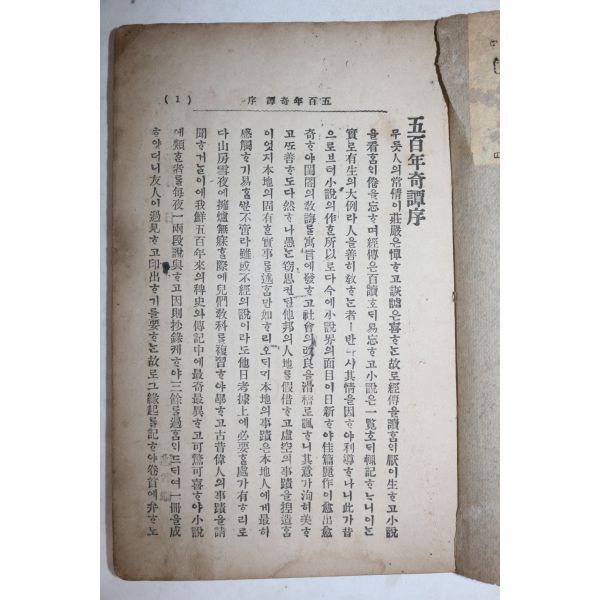 五百年奇譚序
무릇人의常情이莊嚴은憚ᄒᆞ고詼謔은喜ᄒᆞᄂᆞᆫ故로經傳을讀ᄒᆞᆷ인厭이生ᄒᆞ고小說
을看ᄒᆞᆷ인倦을忘ᄒᆞ며經傳은百讀호ᄃᆡ易忘ᄒᆞ고小說은一覽호ᄃᆡ輒記ᄒᆞᄂᆞ니이ᄂᆞᆫ
實로有生의大例라人을善히敎ᄒᆞᄂᆞᆫ者ㅣ반다시其情을因ᄒᆞ야利導ᄒᆞ나니此가昔
으로브터小說의作ᄒᆞᆫ所以로다今에小說界의面目이日新ᄒᆞ야佳篇麗作이愈出愈
奇ᄒᆞ야閨閤의敎誨를寓言에發ᄒᆞ고社會의改良을滑稽로諷ᄒᆞ니其意가洵히美ᄒᆞ
고ᄯᅩ善ᄒᆞ도다然ᄒᆞ나愚ᄂᆞᆫ窃思컨ᄃᆡ他邦의人地를假借ᄒᆞ고虛空의事蹟을揑造ᄒᆞᆷ
이엇지本地의固有ᄒᆞᆫ實事를述ᄒᆞᆷ만如ᄒᆞ리오ᄯᅩ本地의事蹟은本地人에게最히
感觸ᄒᆞ기易ᄒᆞᆯᄲᅮᆫ不啻라雖或不經의說이라도他日考據上에必要ᄒᆞᆫ處가有ᄒᆞ리로
다山房雪夜에擁爐無寐ᄒᆞᆯ際에兒們敎科를複習ᄒᆞ야畢ᄒᆞ고古昔偉人의事蹟을請
聞ᄒᆞ거ᄂᆞᆯ이에我鮮五百年來의稗史와傳記中에最奇最異ᄒᆞ고可驚可喜ᄒᆞ야小說
에類ᄒᆞᆫ者를每夜一兩段說與ᄒᆞ고因則抄錄케ᄒᆞ야三餘를過ᄒᆞᆷ인드ᄃᆡ여一冊을成
ᄒᆞ얏더니友人이過見ᄒᆞ고印出ᄒᆞ기를要ᄒᆞᄂᆞᆫ故로그緣起를記ᄒᆞ야卷首에弁ᄒᆞ노
五百年奇譚 序
(1)